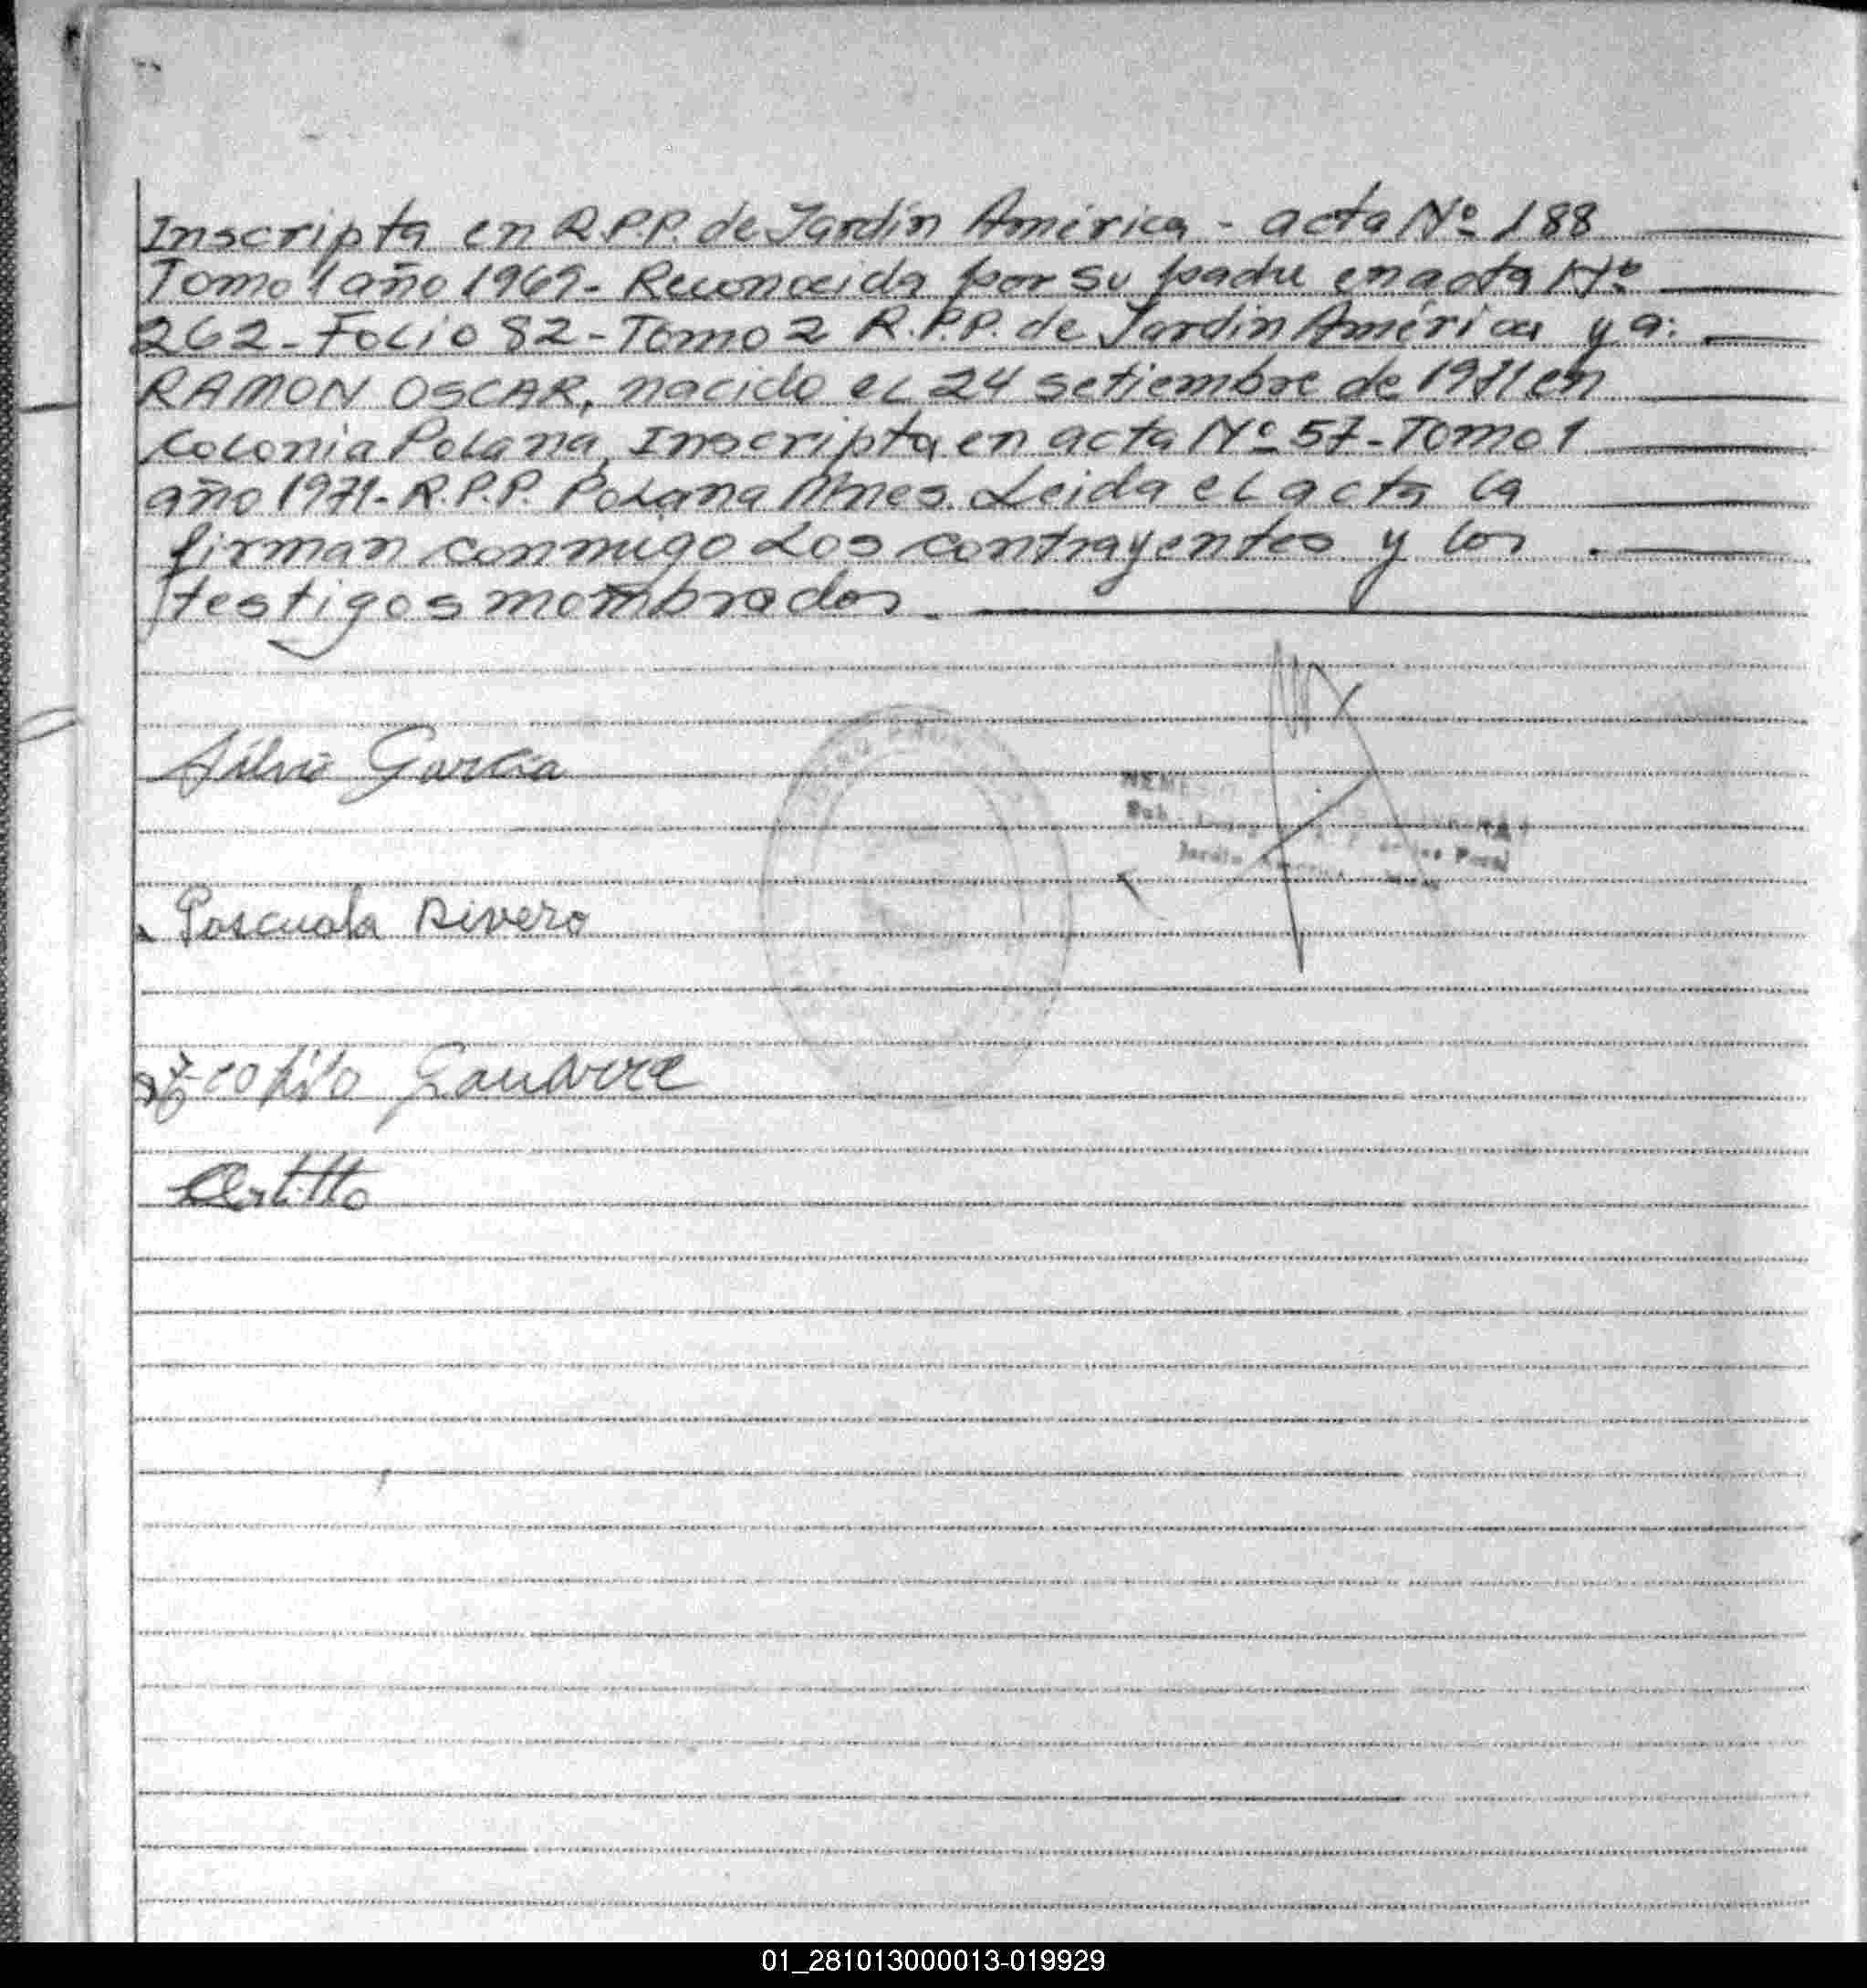 Inscripta en R.P.P. de Jardín América - acta Nº 188
Tomo 1 año 1969 - Reconocida por su padre en acta Nº
262 - Folio 82 - Tomo 2 R.P.P. de Jardín América y a:
RAMON OSCAR, nacido el 24 setiembre de 1971 en
Colonia Polana, Inscripta en acta Nº 57 - Tomo 1
año 1971 - R.P.P. Polana Mnes. Leida el acta la
firman conmigo Los contrayentes y los
testigos mombrados.
Silvio Garcia
NEMESIO
Sub.
de las Pers
Jardín América
Pascuala Rivero
01_281013000013-019929